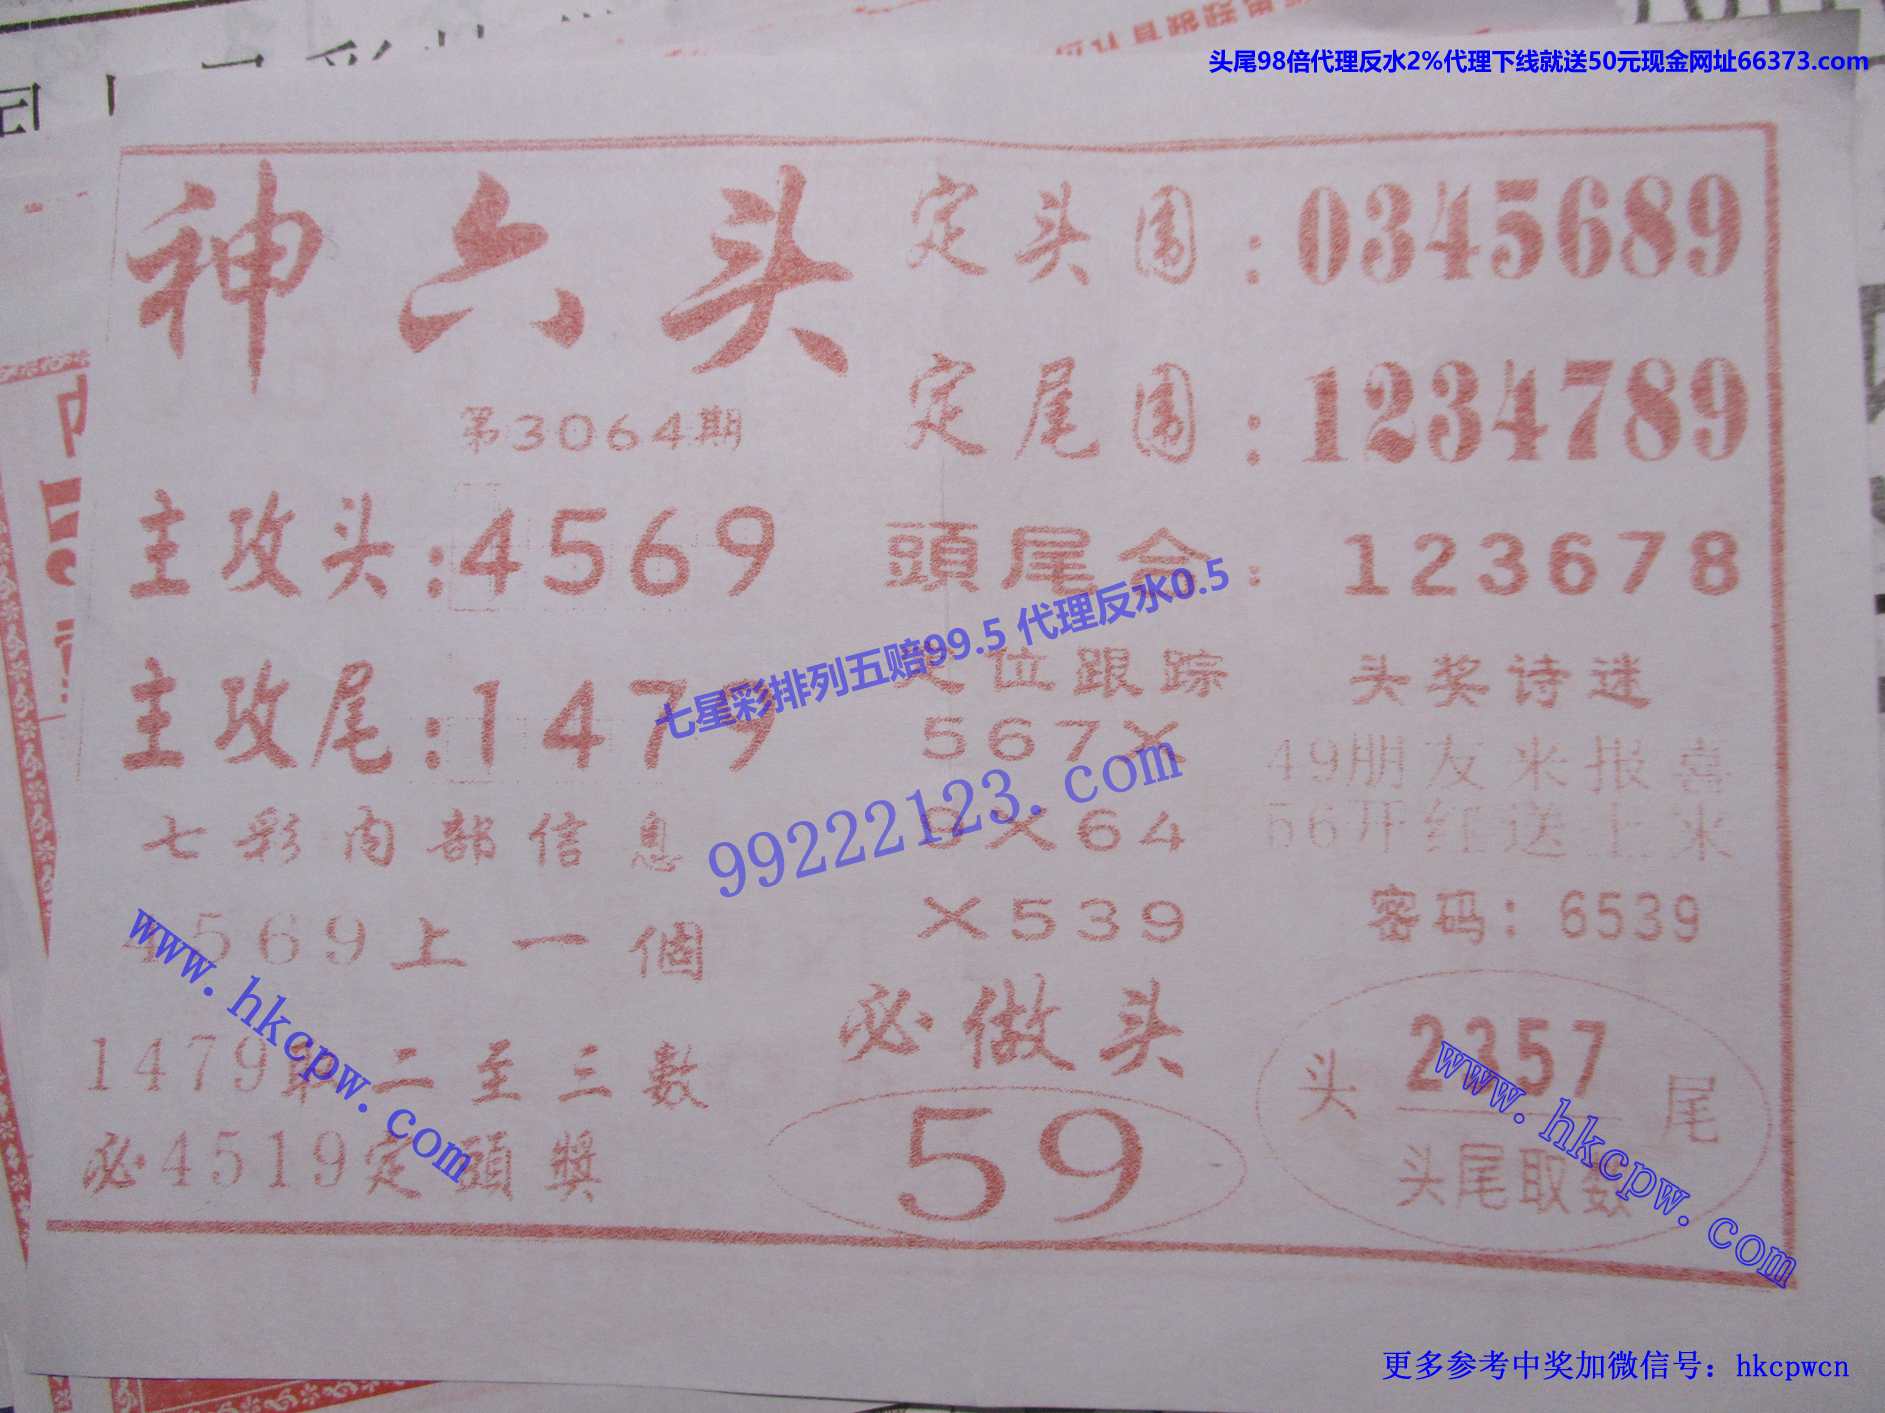 头尾98倍代理反水2%代理下线就送50元现金网址66373.com
神六头
第3064期
主攻头:4569
主攻尾:1479
七彩内部信息
4569上一個
1479 二至三數
必4519定頭獎
定头围:0345689
定尾围:1234789
頭尾合:123678
七星彩排列五赔99.5 代理反水0.5
99222123.com
位跟踪
567X
X64
X539
必做头
59
头奖诗迷
49朋友来报喜
56开红送上来
密码:6539
头 2357 尾
头尾取数
www.hkcpw.com
www.hkcpw.com
更多参考中奖加微信号:hkcpwcn